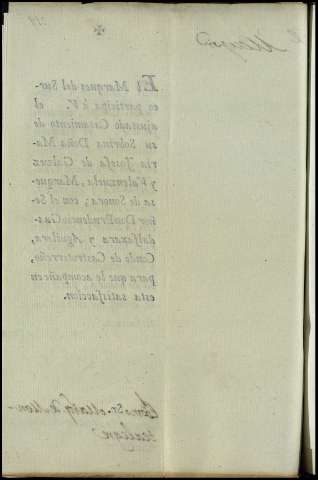 El Marques del Sur-
co participa à V. el
ajustado Casamiento de
su Sobrina Doña Ma-
ria Josefa de Galvez
y Valenzuela, Marque-
sa de Sonora; con el Se-
ñor Don Prudencio Gua-
dalfaxara y Aguilera,
Conde de Castroterreño,
para que le acompañe en
esta satisfaccion.
Exmo Sr. Marqs de Mon-